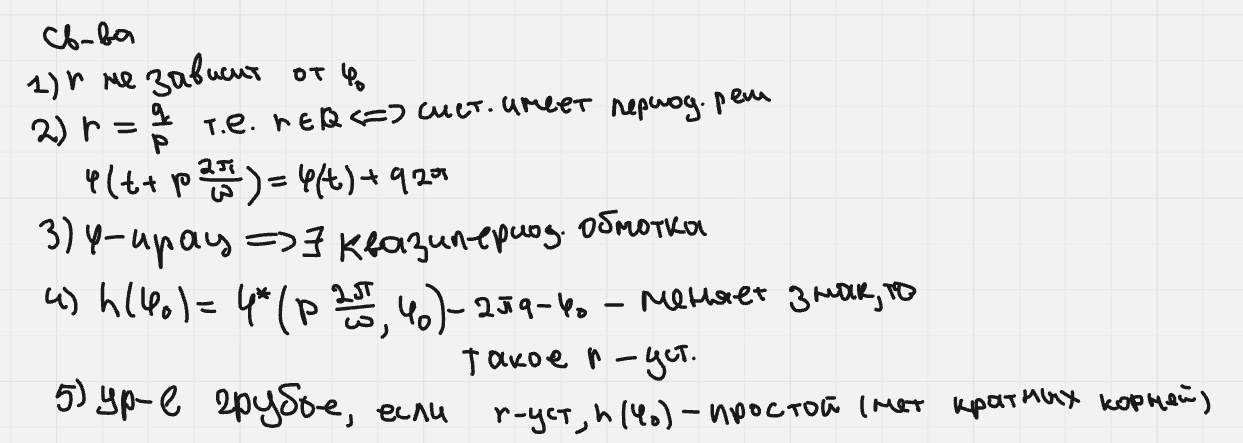 св-ва
1) r не зависит от φ₀
2) r = q/p т.е. r ∈ ℚ <=> сист. имеет период. реш
φ(t + p 2π/ω) = φ(t) + q 2π
3) φ-ирац => ∃ квазипериод. обмотка
4) h(φ₀) = φ*(p 2π/ω, φ₀) - 2πq - φ₀ - меняет знак, то
такое r - уст.
5) ур-е грубое, если r-уст, h(φ₀) - простой (нет кратных корней)